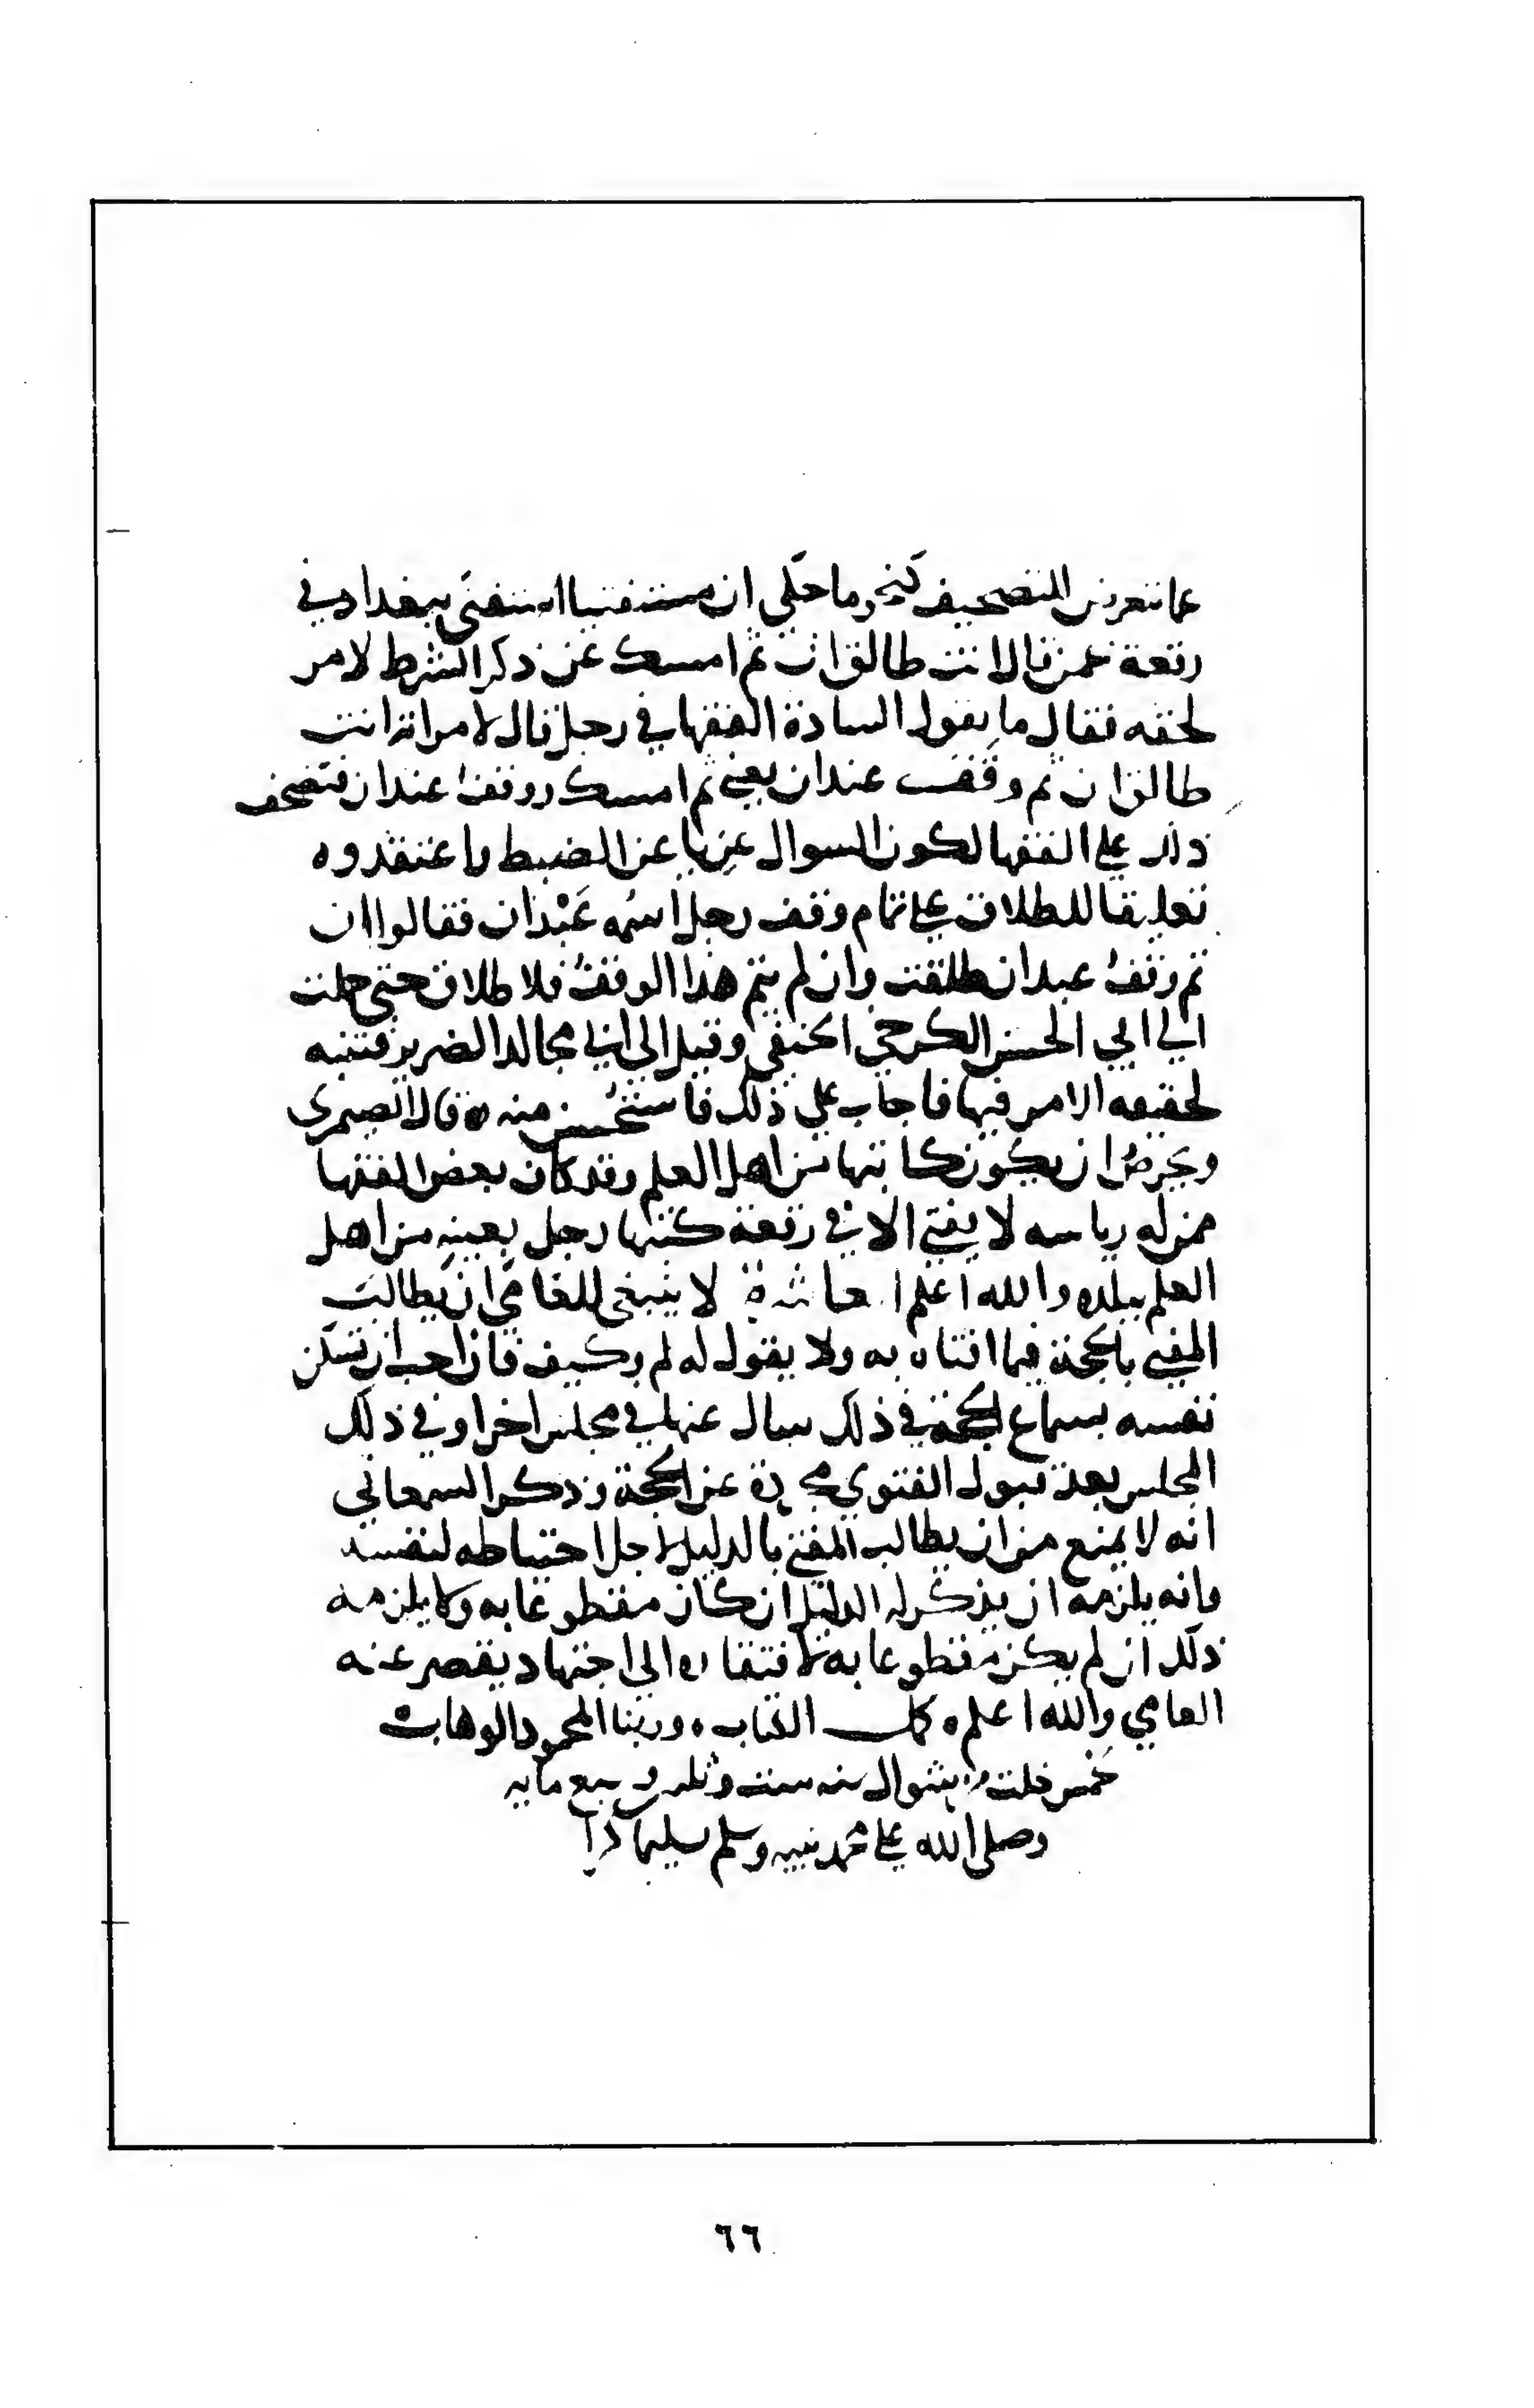 عما يتعرض للتصحيف كنحو ما حكي ان مستفتيا استفتى ببغداد في
رقعة عمن قال انت طالق ان ثم امسك عن ذكر الشرط لامر
لحقه فقال ما يقول السادة الفقها في رجل قال لامراته انت
طالق ان ثم وقف عند ان يعني ثم امسك ووقف عند ان فتصحف
ذلك على الفقها لكون السوال عريا عن الضبط واعتقدوه
تعليقا للطلاق على تمام وقف رجل اسمه عَبْدان فقالوا ان
تم وقف عبدان طلقت وان لم يتم هذا الوقف فلا طلاق حتى حملت
الى ابي الحسن الكرخي الحنفي وقيل الى ابي مجالد الضرير فتنبه
لحقيقه الامر فيها فاجاب على ذلك فاستحسن منه ه قال الصيمري
ويحرص ان يكون كاتبها من اهل العلم وقد كان بعض الفقها
ممن له رياسه لا يفتي الا في رقعة كتبها رجل بعينه من اهل
العلم ببلده والله اعلم العاشرة لا ينبغي للعامي ان يطالب
المفتي بالحجة فيما افتاه به ولا يقول له لم وكيف فان احب ان تسكن
نفسه بسماع الحجة في ذلك سال عنها في مجلس اخر او في ذلك
المجلس بعد قبول الفتوي مجردة عن الحجة وذكر السمعاني
انه لا يمنع من ان يطالب المفتي بالدليل لاجل احتياطه لنفسه
وانه يلزمه ان يذكر له الدليل ان كان مقطوعا به ولا يلزمه
ذلك ان لم يكن مقطوعا به لافتقاره الى اجتهاد يقصر عنه
العامي والله اعلم ه كمل الكتاب ه وربنا المحمود الوهاب
خمس خلت من شوال سنه ست وثلثين وسبع مايه
وصلى الله على محمد نبيه وسلم تسليما
٦٦